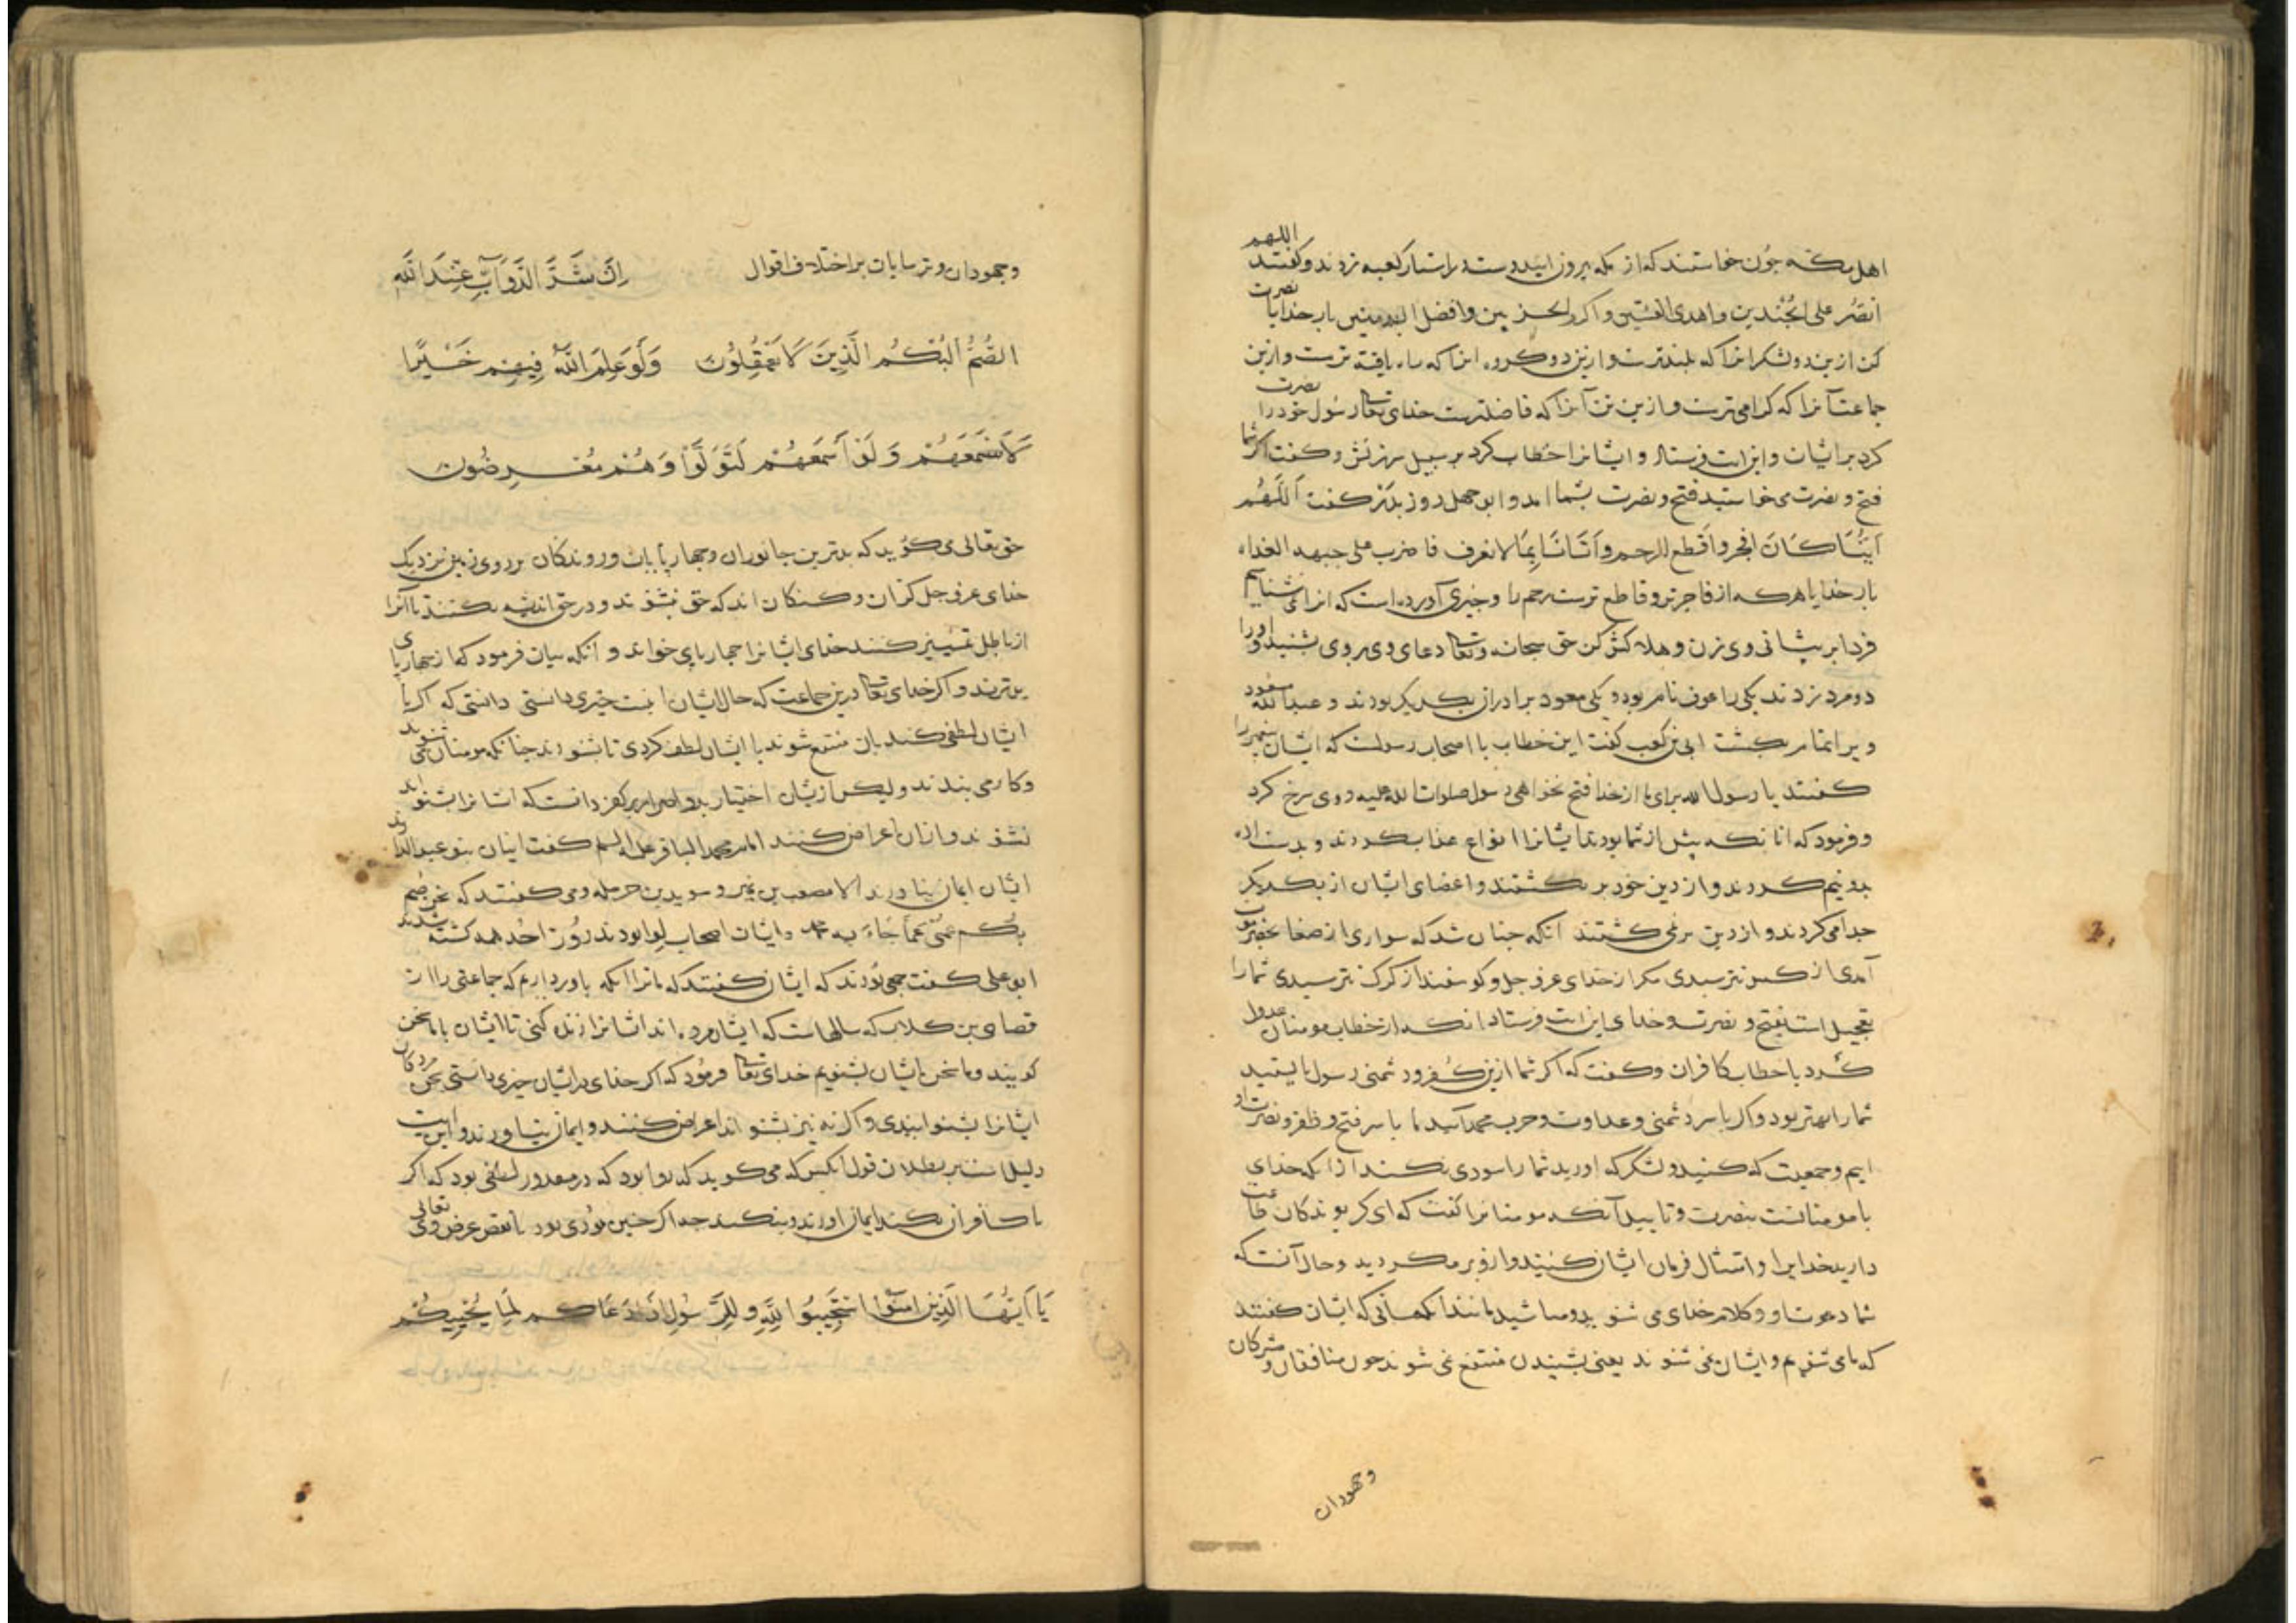 اهل مکه چون خواستند که از مکه بیرون ایند دست در استار کعبه زدند و کفتند اللهم
انصر علی الجندین و اهدی الفئتین و اکرم الحزبین و افضل الدینین بار خدایا نصرت
کن ازین دو لشکر انرا که بلندترست و ازین دو کروه انرا که راه یافته ترست و ازین
جماعت آنرا که کرامی ترست و ازین آنرا که فاضلترست خدای تعالی رسول خود را نصرت
کرد بر ایشان و این ایت فرستاد و ایشانرا خطاب کرد بر سبیل سرزنش و کفت اکر شما
فتح و نصرت می خواستید فتح و نصرت بشما امد و ابو جهل روز بدر کفت اَللَّهُم
اَیُّنَا کَانَ افجر و اَقطع للرحم و اَتَانَا بِمَا لا نعرف فاضرب علی جبهه الغداه
بار خدایا هرکه از ما فاجرتر و قاطع ترست رحم را و چیزی آورده است که انرا نمی شناسیم
فردا بر پیشانی وی زن و هلاکش کن حق سبحانه و تعالی دعای وی بر وی بشنید و او را
دو مرد زدند یکی را عوف نام بود و یکی معود برادران یکدیکر بودند و عبدالله مسعود
ویرا تمام بکشت ابی بن کعب کفت این خطاب با اصحاب رسولست که ایشان پیغمبر را
کفتند یا رسول الله برای ما از خدا فتح نخواهی رسول صلوات الله علیه روی سرخ کرد
و فرمود که انانکه پیش از شما بودند ایشانرا انواع عذاب کردند و بدست اره
بدو نیم کردند و از دین خود بر نکشتند و اعضای ایشان از یکدیکر
جدا می کردند و از دین بر نمی کشتند آنکه چنان شد که سواری از صنعا بحضرموت
آمدی از کس نترسیدی مکر از خدای عز و جل و کوسفند از کرک نترسیدی شما را
تعجیل است بفتح و نصرت و خدای این ایت فرستاد انکه از خطاب مومنان عدول
کرد با خطاب کافران و کفت که اکر شما ازین کفر و دشمنی رسول بایستید
شما را بهتر بود و اکر با سر دشمنی و عداوت و حرب محمد آئید ما با سر فتح و ظفر و نصرت او
ایم و جمعیت که کنید و لشکر که اورید شما را سودی نکند از انکه خدای
با مومنانست بنصرت و تایید آنکه مومنانرا کفت که ای کرویدکان طاعت
دارید خدایرا و امتثال فرمان ایشان کنید و ازو بر مکردید و حال آنست که
شما دعوت او و کلام خدای می شنوید و مباشید مانند انکسانی که ایشان کفتند
که ما می شنویم و ایشان نمی شنوند یعنی بشنیدن منتفع نمی شوند چون منافقان و مشرکان
وجهودان
وجهودان و ترسایان بر اختلاف اقوال اِنَّ شَرَّ الدَّوَآبِّ عِنْدَ اللّٰهِ
الصُّمُّ الْبُكْمُ الَّذِينَ لَا يَعْقِلُونَ وَلَوْ عَلِمَ اللّٰهُ فِيهِمْ خَيْرًا
لَاَسْمَعَهُمْ وَلَوْ اَسْمَعَهُمْ لَتَوَلَّوْا وَهُمْ مُعْرِضُونَ
حق تعالی می کوید که بدترین جانوران و چهارپایان و روندکان بر روی زمین نزدیک
خدای عز و جل کران و کنکان اند که حق نشنوند و در حق اندیشه نکنند تا آنرا
از باطل تمییز کنند خدای ایشانرا چهارپای خواند و آنکه بیان فرمود که از چهارپای
بدترند و اکر خدای تعالی درین جماعت که حال ایشان اینست چیزی دانستی دانستی که اکر با
ایشان لطفی کند بان منتفع شوند با ایشان لطف کردی تا بشنودند چنانکه مومنان می شنوند
و کار می بندند ولیکن ازیشان اختیار بد و اصرار بر کفر دانست که اکر ایشانرا بشنواند
نشنوند و ازان اعراض کنند امام محمد الباقر علیه السلم کفت اینان بنو عبدالدارند
ایشان ایمان نیاوردند الا مصعب بن عمیر و سوید بن حرمله و می کفتند که نحن صُم
بُکم عُمی عما جاءَ به محمد و ایشان اصحاب لوا بودند روز اُحد همه کشته شدند
ابو علی کفت جمعی بودند که ایشان کفتند که ما ترا انکه باور داریم که جماعتی را از
قصی بن کلاب که سالهاست که ایشان مرده اند ایشانرا زنده کنی تا ایشان با ما سخن
کویند و ما سخن ایشان بشنویم خدای تعالی فرمود که اکر خدای در ایشان چیزی دانستی سخن مردکان
ایشانرا بشنوانیدی و اکر نه نیز بشنواند اعراض کنند و ایمان نیاورند و این ایت
دلیل است بر بطلان قول انکس که می کوید که روا بود که در مقدور لطفی بود که اکر
با کافران بکند ایمان اورند و بنکند چه اکر چنین بودی بود تا نقض غرض وی تعالی
يَا اَيُّهَا الَّذِينَ اٰمَنُوا اسْتَجِيبُوا لِلّٰهِ وَلِلرَّسُولِ اِذَا دَعَاكُمْ لِمَا يُحْيِيكُمْ